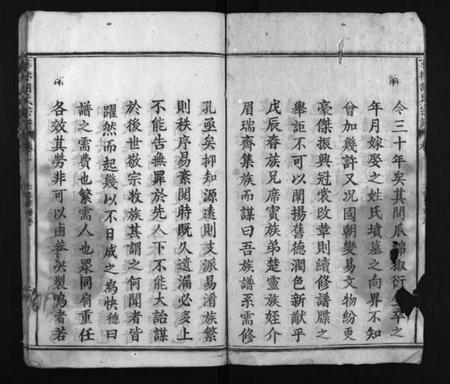 今三十年矣其間瓜綿椒衍生卒之
年月嫁娶之姓氏墳墓之向界不知
曾加幾許又况國朝變易文物紛更
豪傑振興冠裳改章則續修譜牒之
舉詎不可以闡揚舊德潤色新猷乎
戊辰春族兄席賓族弟楚靈族姪介
眉瑞齊集族而謀曰吾族譜系需修
孔亟矣抑知源遠則支派易淆族繁
則秩序易紊閱時既久遺漏必多上
不能告無罪於先人下不能大詒謀
於後世敬宗收族其謂之何聞者皆
躍然而起幾以不日成之為快德曰
譜之需費也繁需人也眾同肩重任
各效其勞非可以鹵莽决裂為者若